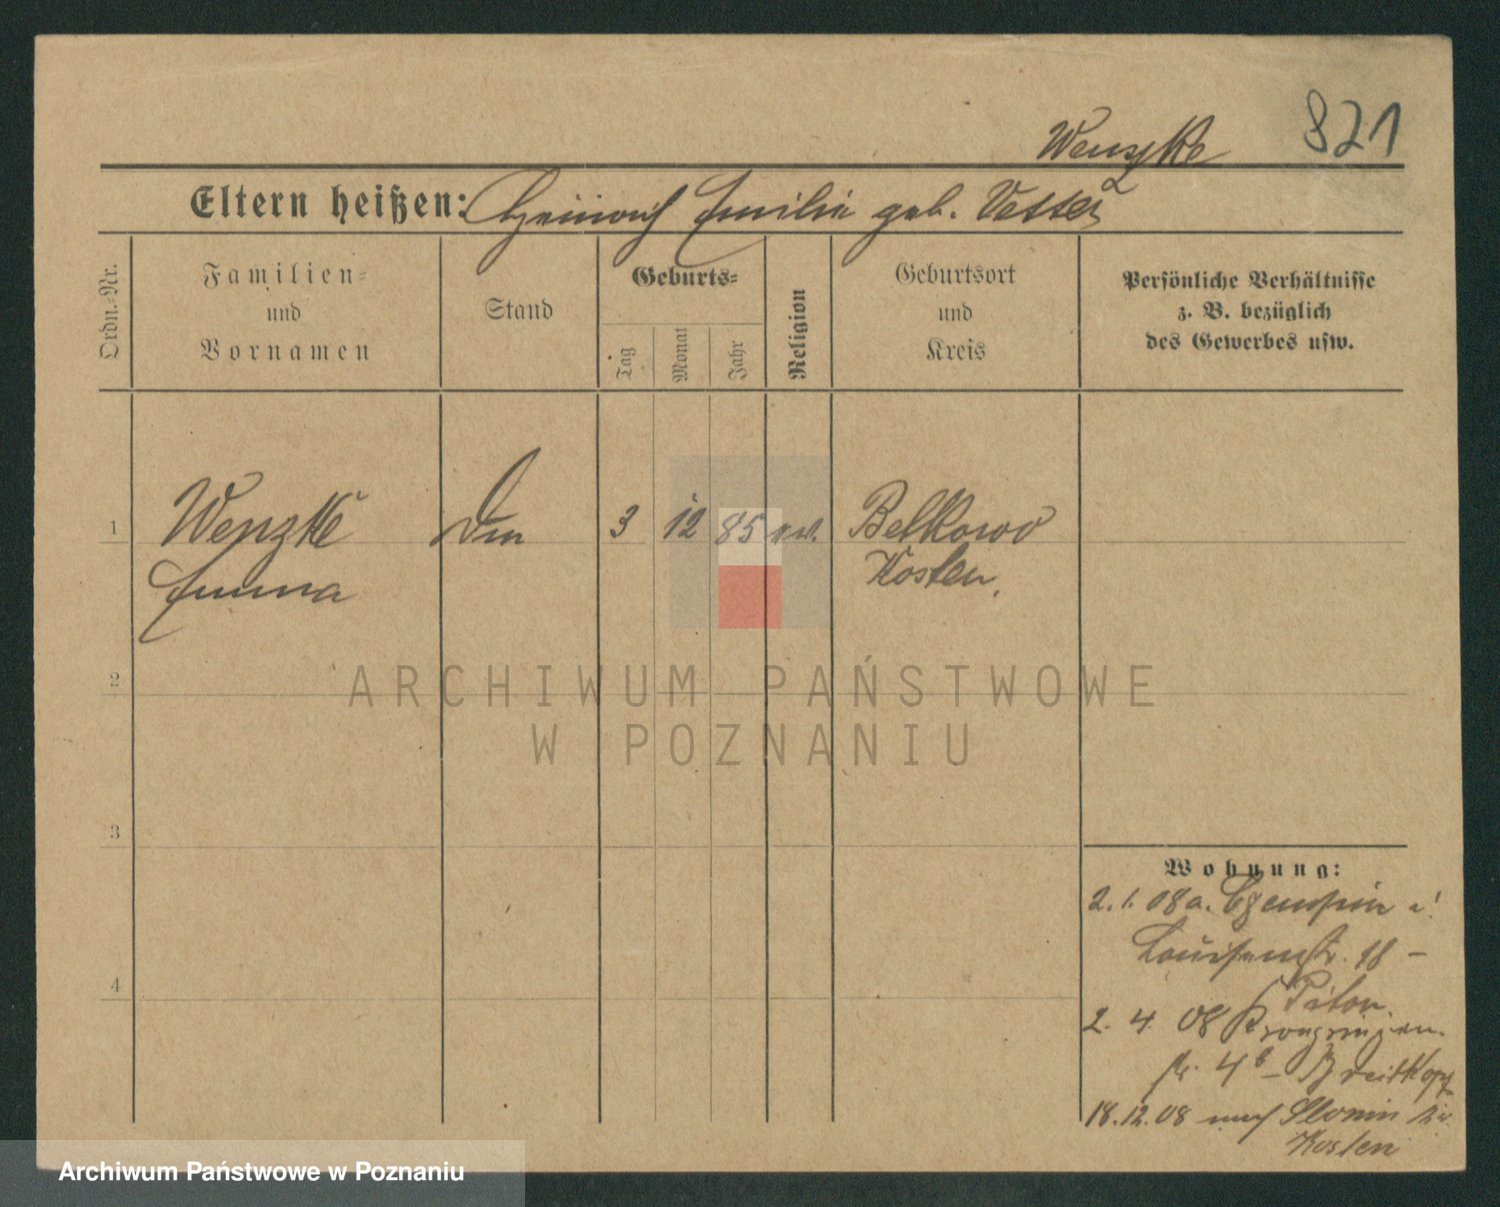 Wenzke 821
Eltern heißen: Heinrich Emilie geb. Vetter
Ordn.-Nr.
Familien-
und
Vornamen
Stand
Geburts-
Tag
Monat
Jahr
Religion
Geburtsort
und
Kreis
Persönliche Verhältnisse
z. B. bezüglich
des Gewerbes usw.
1 Wenzke 3 12 85 ev. Belkowo
Emma Kosten.
2
3
4
Wohnung:
2. 1. 08 a. Czempin
Louisenstr. 18 -
2. 4. 08 Kronprinzen-
str. 4b - Breitkopf
18.12.08 nach Slonin Kr.
Kosten
ARCHIWUM PAŃSTWOWE
W POZNANIU
Archiwum Państwowe w Poznaniu